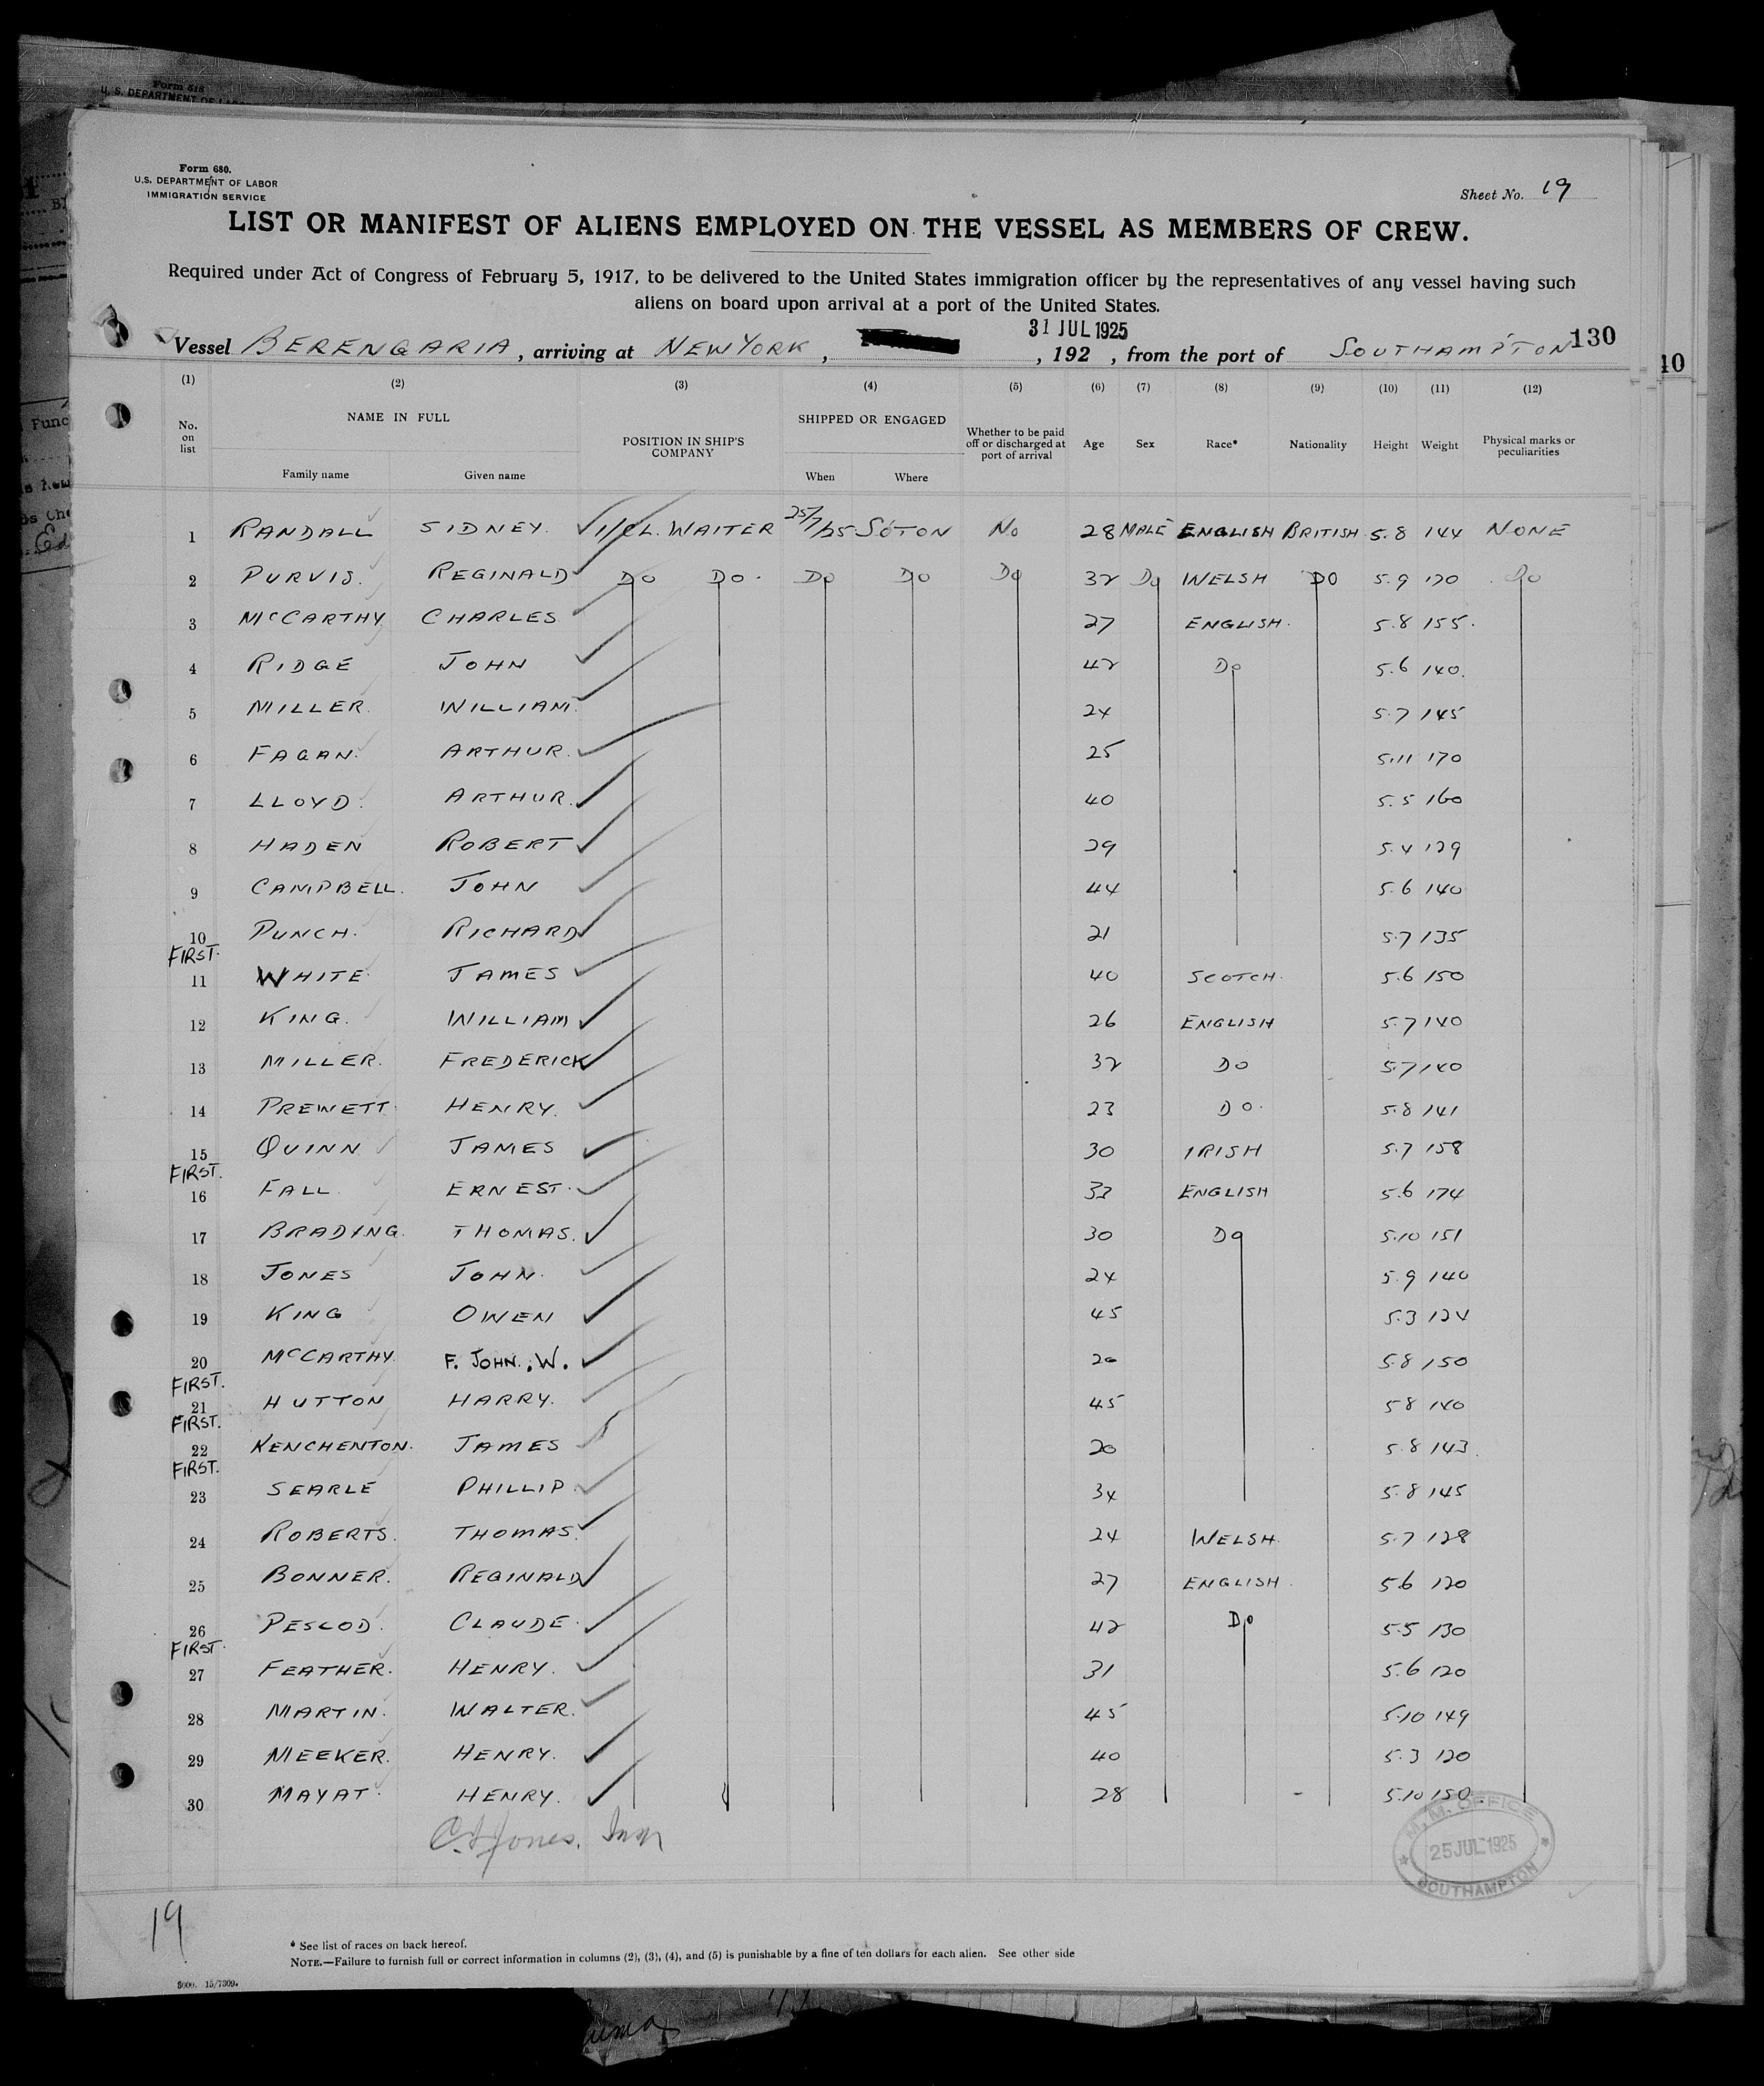 Form 518
U. S. DEPARTMENT OF LABOR
Form 680.
U.S. DEPARTMENT OF LABOR
IMMIGRATION SERVICE
Sheet No. 19
LIST OR MANIFEST OF ALIENS EMPLOYED ON THE VESSEL AS MEMBERS OF CREW.
Required under Act of Congress of February 5, 1917, to be delivered to the United States immigration officer by the representatives of any vessel having such
aliens on board upon arrival at a port of the United States.
31 JUL 1925
Vessel BERENGARIA, arriving at NEW YORK, , 192 , from the port of SOUTHAMPTON 130
40
(1) (2) (3) (4) (5) (6) (7) (8) (9) (10) (11) (12)
No. on list NAME IN FULL POSITION IN SHIP'S COMPANY SHIPPED OR ENGAGED Whether to be paid off or discharged at port of arrival Age Sex Race* Nationality Height Weight Physical marks or peculiarities
Family name Given name When Where
1 RANDALL SIDNEY. 1/CL. WAITER 25/7/25 SOTON No 28 MALE ENGLISH BRITISH 5.8 144 NONE
2 PURVIS. REGINALD Do Do. Do Do Do 32 Do WELSH DO 5.9 170 Do
3 McCARTHY CHARLES 27 ENGLISH. 5.8 155.
4 RIDGE JOHN 42 Do 5.6 140.
5 MILLER. WILLIAM. 24 5.7 145
6 FAGAN. ARTHUR. 25 5.11 170
7 LLOYD. ARTHUR. 40 5.5 160
8 HADEN ROBERT 29 5.4 129
9 CAMPBELL. JOHN 44 5.6 140
10 PUNCH. RICHARD 21 5.7 135
FIRST.
11 WHITE JAMES 40 SCOTCH. 5.6 150
12 KING. WILLIAM 26 ENGLISH 5.7 140
13 MILLER. FREDERICK 32 DO 5.7 140
14 PREWETT. HENRY. 23 DO. 5.8 141
15 QUINN JAMES 30 IRISH 5.7 158
FIRST.
16 FALL. ERNEST. ENGLISH 5.6 174
17 BRADING. THOMAS. 30 Do 5.10 151
18 JONES JOHN. 24 5.9 140
19 KING OWEN 45 5.3 124
20 McCARTHY. F. JOHN. W. 5.8 150
FIRST.
21 HUTTON HARRY. 45 5 8 140
FIRST.
22 KENCHENTON. JAMES 20 5.8 143.
FIRST.
23 SEARLE PHILLIP. 34 5.8 145
24 ROBERTS. THOMAS. 24 WELSH. 5.7 128
25 BONNER. REGINALD 27 ENGLISH. 5.6 120
26 PESCOD. CLAUDE. 42 Do 5.5 130
FIRST.
27 FEATHER. HENRY. 31 5.6 120
28 MARTIN. WALTER. 45 5.10 149
29 MEEKER. HENRY. 40 5.3 120
30 MAYAT. HENRY. 28 5.10 150.
Jones. Insp
M.M. OFFICE
25 JUL 1925
SOUTHAMPTON
19
* See list of races on back hereof.
NOTE.—Failure to furnish full or correct information in columns (2), (3), (4), and (5) is punishable by a fine of ten dollars for each alien. See other side
15/7309.